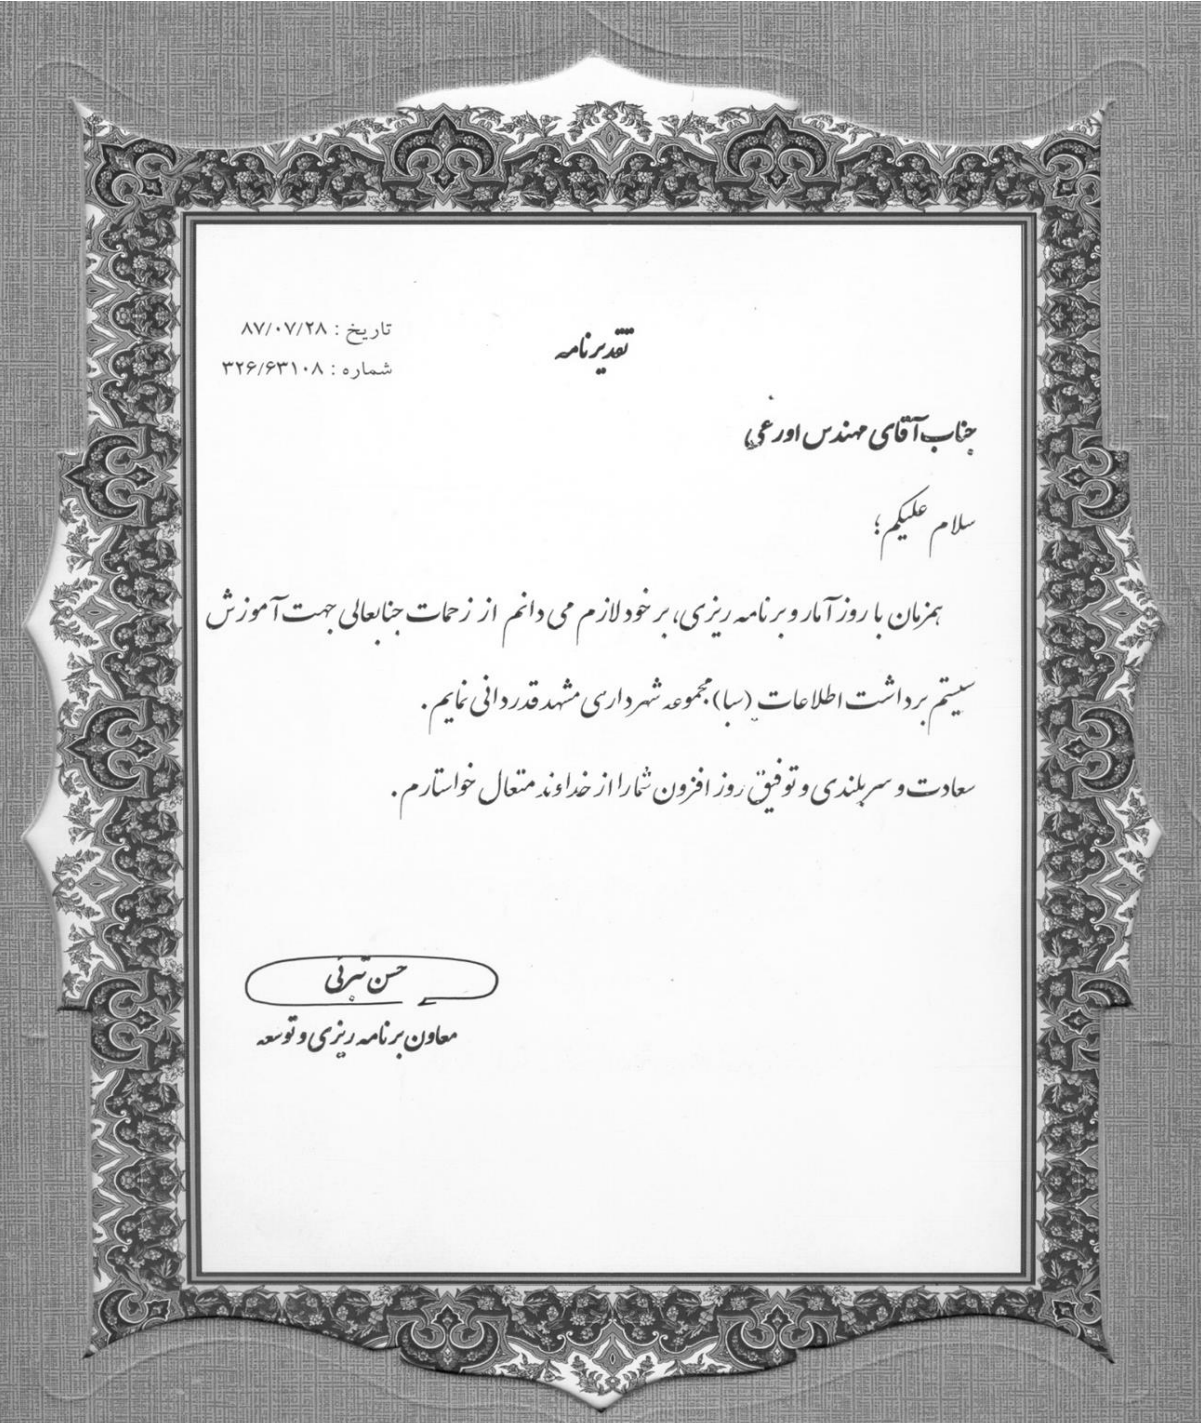 تاریخ : ۸۷/۰۷/۲۸
تقدیرنامه
شماره : ۳۲۶/۶۳۱۰۸
جناب آقای مهندس اورعی
سلام علیکم؛
همزمان با روز آمار و برنامه ریزی، بر خود لازم می دانم از زحمات جنابعالی جهت آموزش
سیستم برداشت اطلاعات (سبا) مجموعه شهرداری مشهد قدردانی نمایم.
سعادت و سربلندی و توفیق روز افزون شما را از خداوند متعال خواستارم.
حسن
معاون برنامه ریزی و توسعه